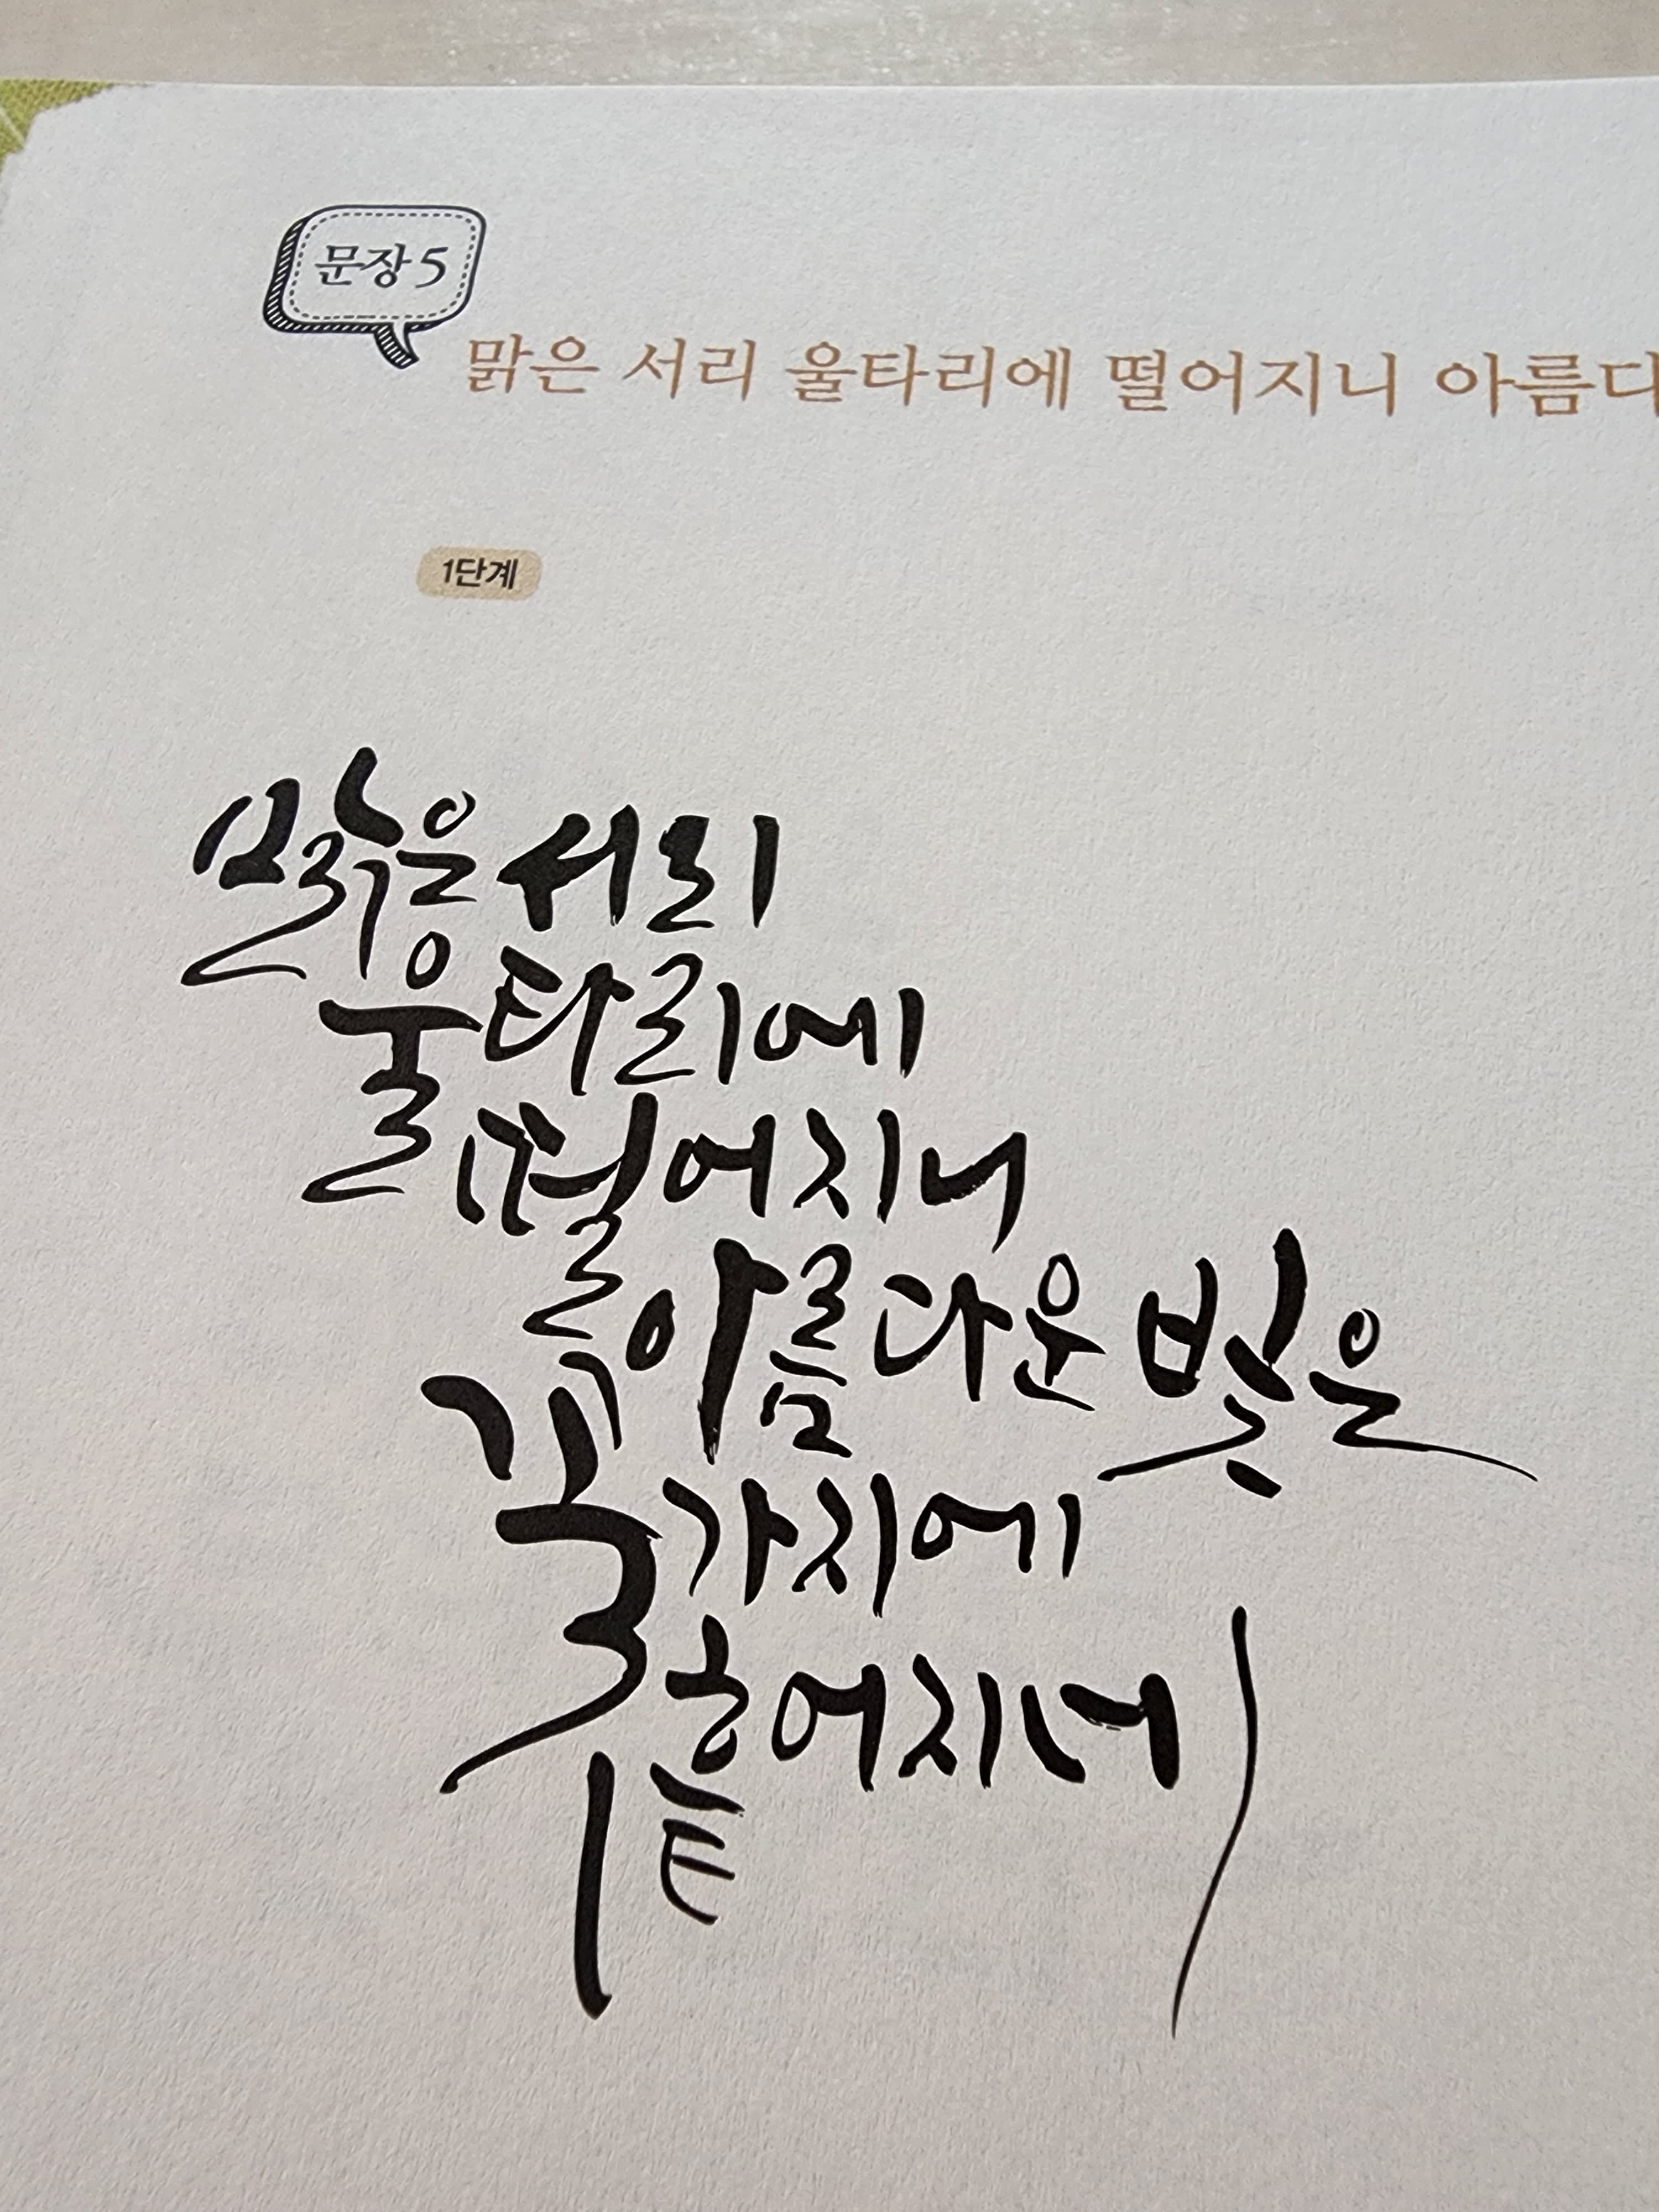 문장 5
맑은 서리 울타리에 떨어지니 아름다
1단계
맑은 서리
울타리에
떨어지니
아름다운 빛은
꽃가지에
흩어지네